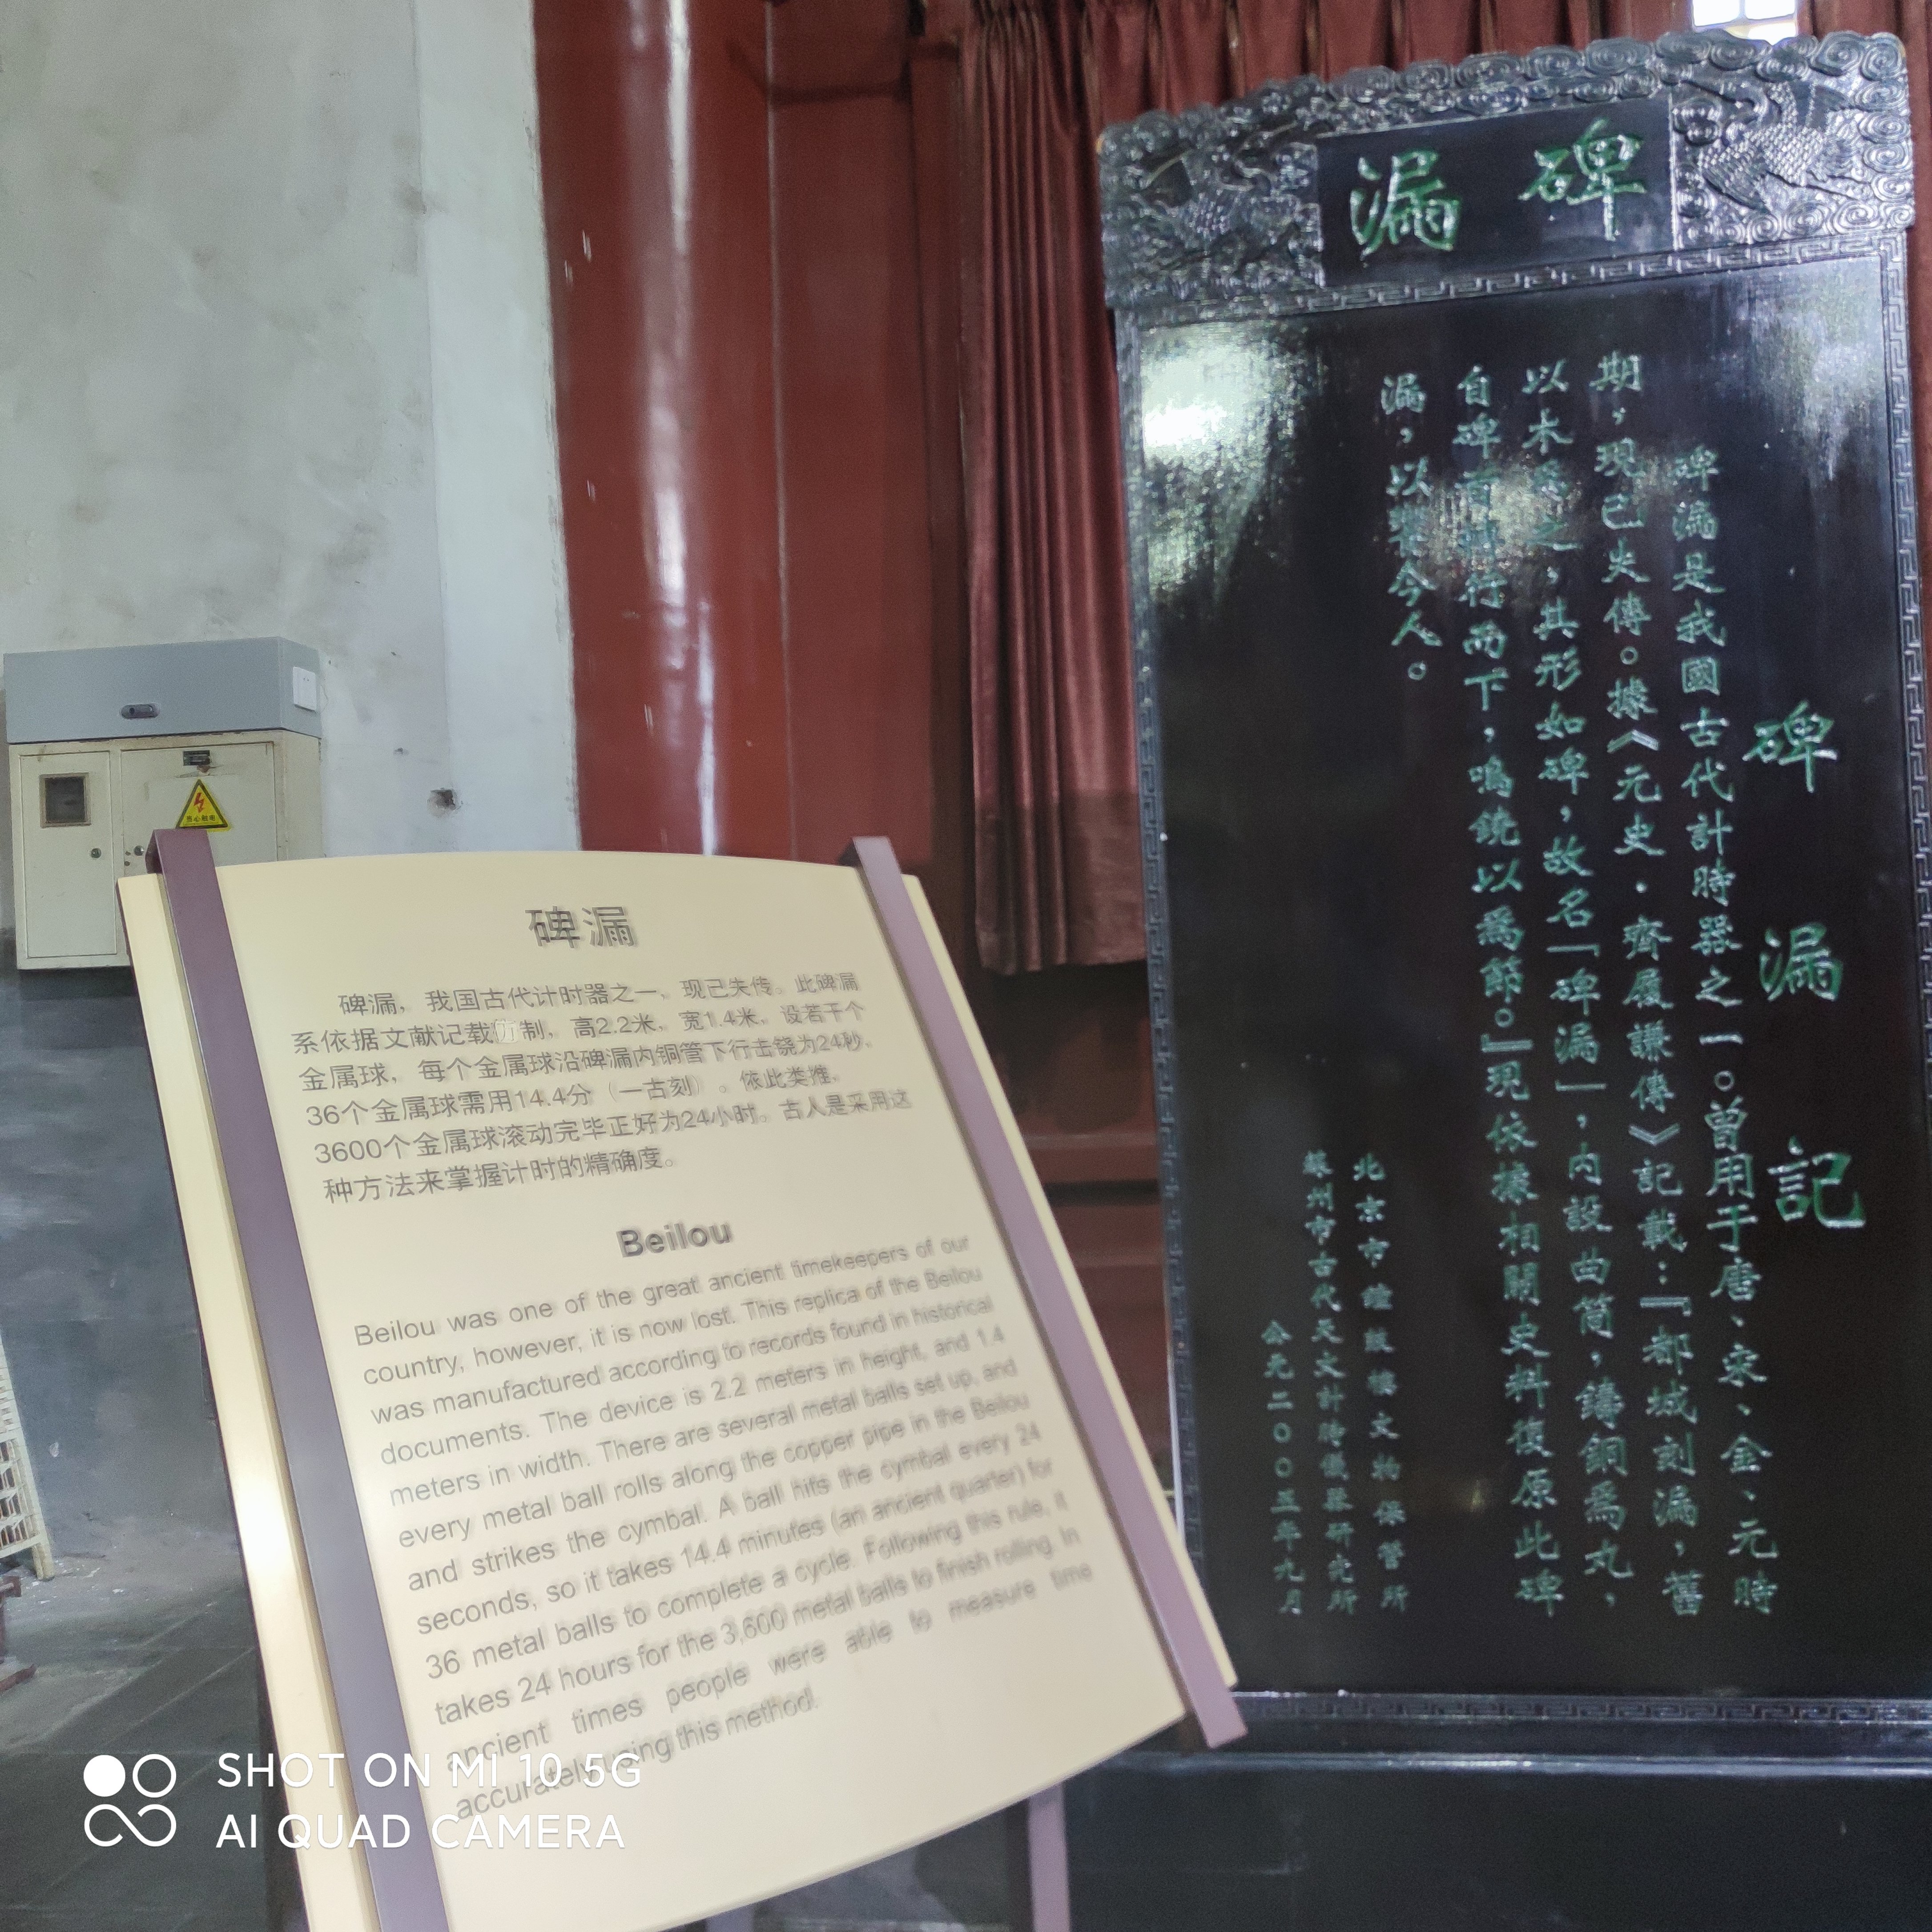 碑漏
碑漏，我国古代计时器之一，现已失传。此碑漏
系依据文献记载仿制，高2.2米，宽1.4米，设若干个
金属球，每个金属球沿碑漏内铜管下行击铙为24秒，
36个金属球需用14.4分（一古刻）。依此类推，
3600个金属球滚动完毕正好为24小时。古人是采用这
种方法来掌握计时的精确度。
Beilou
Beilou was one of the great ancient timekeepers of our
country, however, it is now lost. This replica of the Beilou
was manufactured according to records found in historical
documents. The device is 2.2 meters in height, and 1.4
meters in width. There are several metal balls set up, and
every metal ball rolls along the copper pipe in the Beilou
and strikes the cymbal. A ball hits the cymbal every 24
seconds, so it takes 14.4 minutes (an ancient quarter) for
36 metal balls to complete a cycle. Following this rule, it
takes 24 hours for the 3,600 metal balls to finish rolling. In
ancient times people were able to measure time
accurately using this method.
碑漏
碑漏記
碑漏是我國古代計時器之一。曾用于唐、宋、金、元時
期，現已失傳。據《元史·齊履謙傳》記載：『都城刻漏，舊
以木爲之，其形如碑，故名「碑漏」，内設曲筒，鑄銅爲丸，
自碑首轉行而下，鳴鐃以爲節。』現依據相關史料復原此碑
漏，以饗今人。
北京市鐘鼓樓文物保管所
蘇州市古代天文計時儀器研究所
公元二00五年九月
SHOT ON MI 10 5G
AI QUAD CAMERA